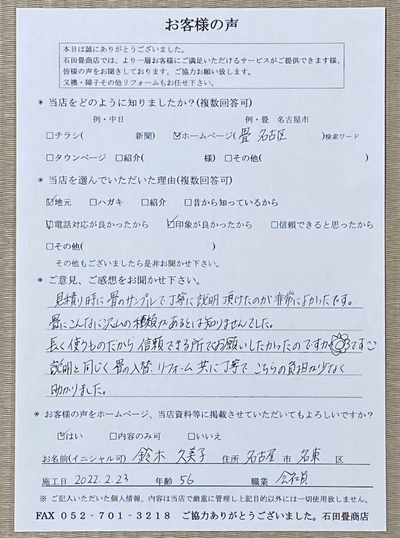 お客様の声
本日は誠にありがとうございました。
石田畳商店では、より一層お客様にご満足いただけるサービスがご提供できます様、
皆様の声をお聞きしております。ご協力お願い致します。
又襖・障子その他リフォームもお任せ下さい。
＊当店をどのように知りましたか？(複数回答可)
例・中日 例・畳 名古屋市
□チラシ( 新聞) ☑ホームページ(畳 名古屋 )検索ワード
□タウンページ □紹介( 様) □その他( )
＊当店を選んでいただいた理由(複数回答可)
☑地元 □ハガキ □紹介 □昔から知っているから
☑電話対応が良かったから ☑印象が良かったから □信頼できると思ったから
□その他( )
その他もございましたら是非お聞かせ下さい。
＊ご意見、ご感想をお聞かせ下さい。
見積り時に畳のサンプルで丁寧に説明頂けたのが非常によかったです。
畳にこんなに沢山の種類があるとは知りませんでした。
長く使うものだから信頼できる所でお願いしたかったのですが
説明と同じく畳の入替 リフォーム共に丁寧で こちらの負担が少なく
助かりました。
＊お客様の声をホームページ、当店資料等に掲載させていただいてもよろしいですか？
☑はい □内容のみ可 □いいえ
お名前(イニシャル可) 鈴木 久美子 住所 名古屋 市 名東 区
施工日 2022.2.23 年齢 56 職業 会社員
※ ご記入いただいた個人情報、内容は当店で厳重に管理し上記目的以外には一切使用致しません。
FAX 052-701-3218 ご協力ありがとうございました。石田畳商店